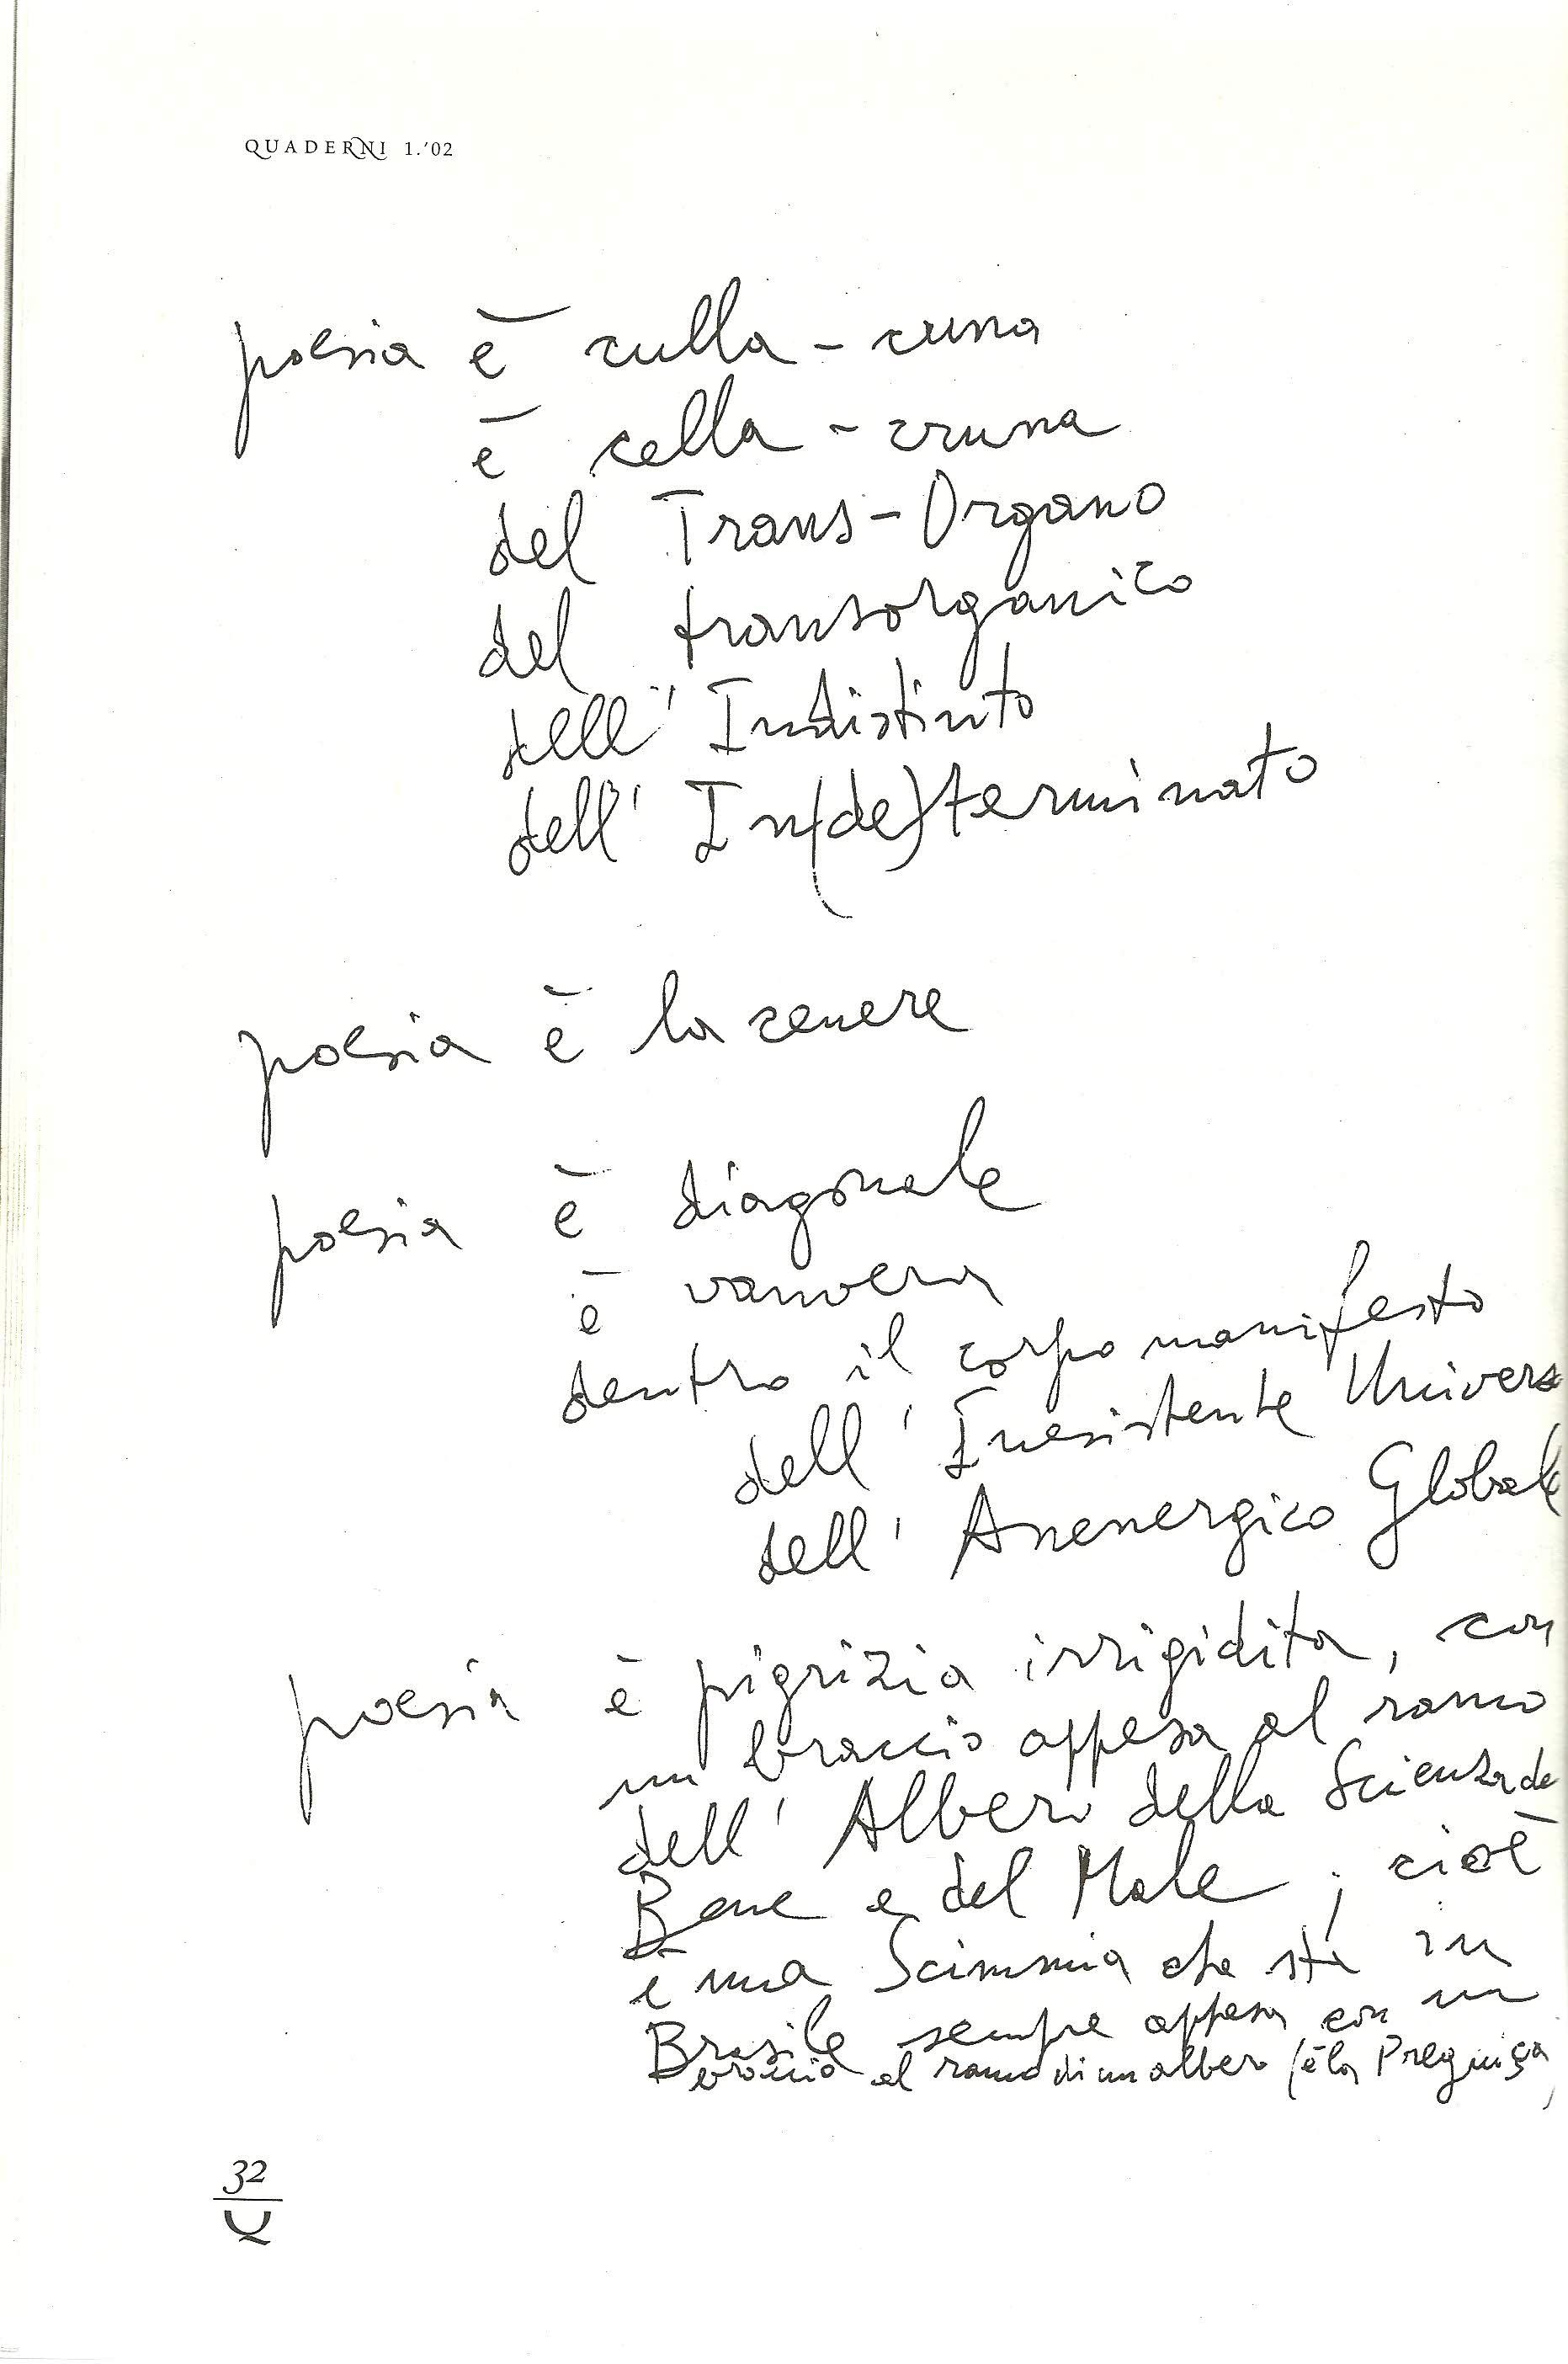 QUADERNI 1.'02
poesia è culla - cuna
è cella - cruna
del Trans-Organo
del transorganico
dell' Indistinto
dell' In(de)terminato
poesia è la cenere
poesia è diagonale
è vanvera
dentro il corpo manifesto
dell' Inesistente Univers
dell' Anenergico Globale
poesia è pigrizia irrigidita, con
un braccio appesa al ramo
dell' Albero della Scienza de
Bene e del Male; cioè
è una Scimmia che sta in
Brasile sempre appesa con un
braccio al ramo di un albero (è la Preguiça,
32
Q